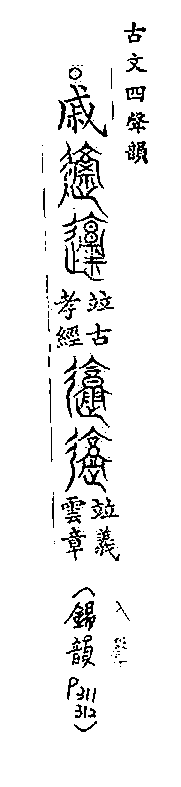 古文四聲韻
戚
竝古孝經
竝義雲章
入聲
(錫韻 P311 312)